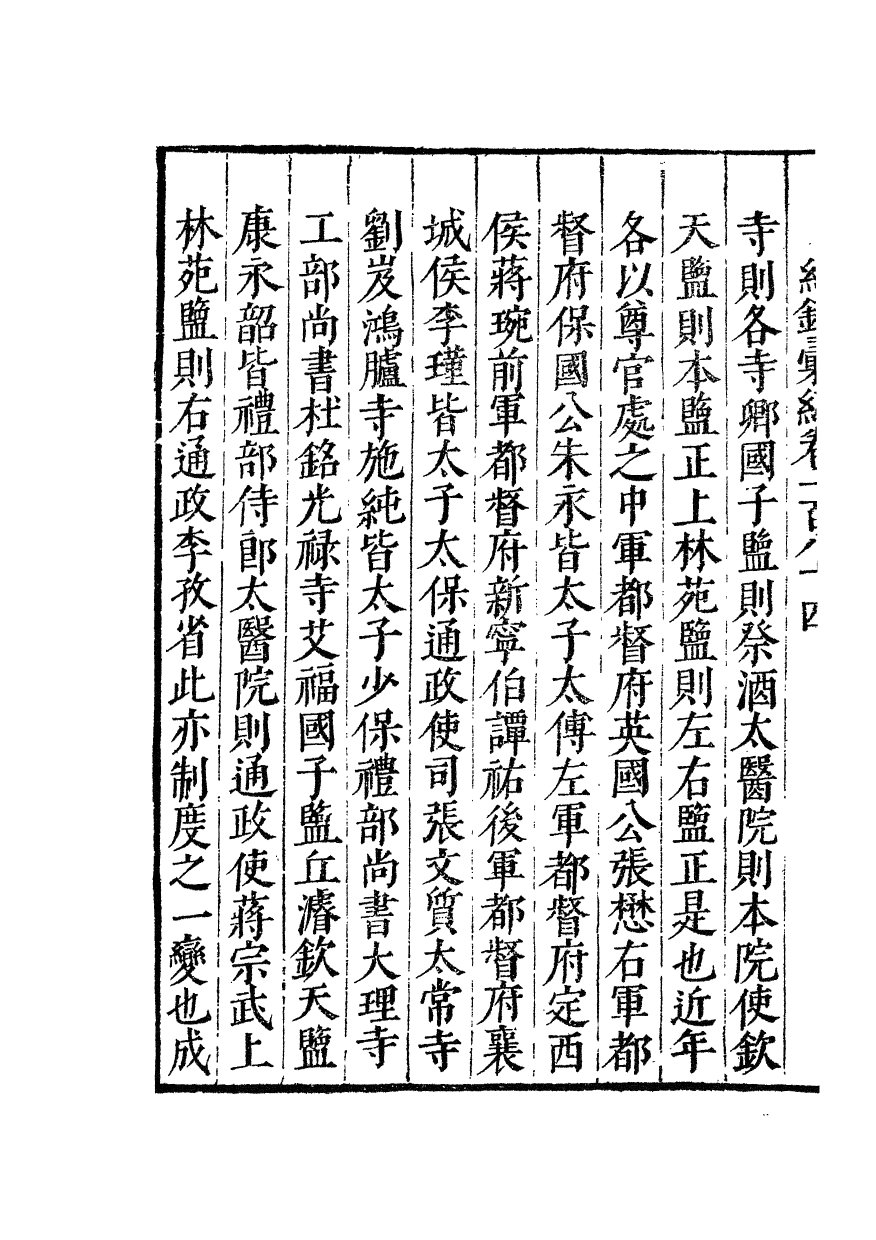 紀錄彙編卷一百八十四
寺則各寺卿國子監則祭酒太醫院則本院使欽
天監則本監正上林苑監則左右監正是也近年
各以尊官處之中軍都督府英國公張懋右軍都
督府保國公朱永皆太子太傅左軍都督府定西
侯蔣琬前軍都督府新寧伯譚祐後軍都督府襄
城侯李瑾皆太子太保通政使司張文質太常寺
劉岌鴻臚寺施純皆太子少保禮部尚書大理寺
工部尚書杜銘光禄寺艾福國子監丘濬欽天監
康永韶皆禮部侍郎太醫院則通政使蔣宗武上
林苑監則右通政李孜省此亦制度之一變也成